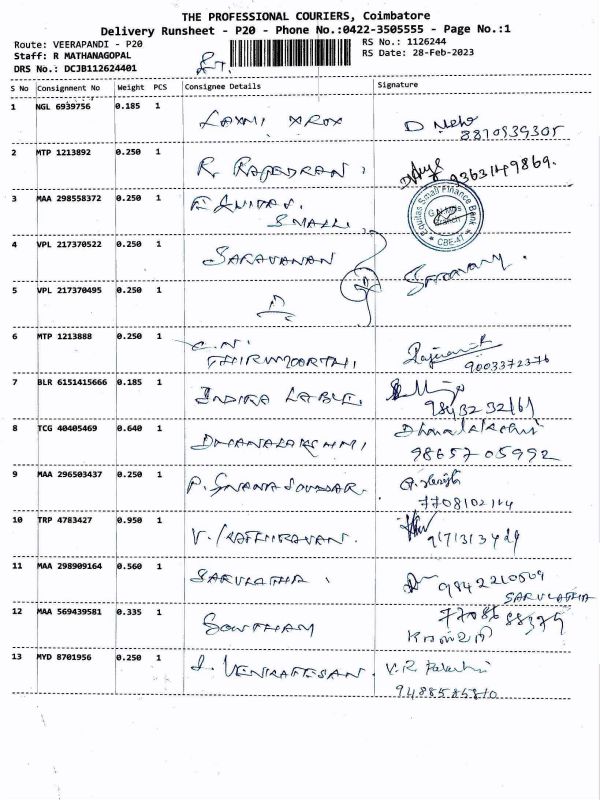 THE PROFESSIONAL COURIERS, Coimbatore
Delivery Runsheet - P20 - Phone No.:0422-3505555 - Page No.:1
Route: VEERAPANDI - P20 RS No.: 1126244
Staff: R MATHANAGOPAL RS Date: 28-Feb-2023
DRS No.: DCJB112624401
S No Consignment No Weight PCS Consignee Details Signature
1 NGL 6939756 0.185 1
LAXMI XROX
8870939305
2 MTP 1213892 0.250 1
R. RAJEDRAN. 9363149869.
3 MAA 298558372 0.250 1
SMALL. Equitas Small Finance Bank
Branch
CBE-47
4 VPL 217370522 0.250 1
SARAVANAN
5 VPL 217370495 0.250 1
6 MTP 1213888 0.250 1
C.N.
THIRUMOORTHI,
9003372376
7 BLR 6151415666 0.185 1
INDIRA LABLE.
9843232161
8 TCG 40405469 0.640 1
DHANALAKSHMI Dhanalakshmi
9865705992
9 MAA 296503437 0.250 1
P. GNANASOUNDAR.
10 TRP 4783427 0.950 1
V. KATHIRAVAN.
11 MAA 298909164 0.560 1
SARULATHA. 9842210509
SARULATHA
12 MAA 569439581 0.335 1
GOWTHAM
13 MYD 8701956 0.250 1
VENKATESAN. V.R.